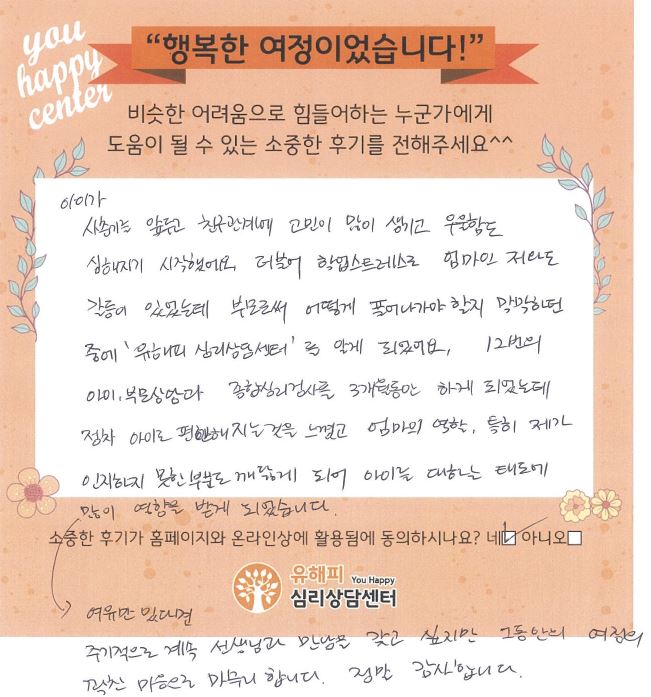 you
happy
center
“행복한 여정이었습니다!”
비슷한 어려움으로 힘들어하는 누군가에게
도움이 될 수 있는 소중한 후기를 전해주세요^^
아이가
사춘기를 앞두고 친구관계에 고민이 많이 생기고 우울함도
심해지기 시작했어요. 더불어 학업스트레스로 엄마인 저와도
갈등이 있었는데 부모로써 어떻게 풀어나가야 할지 막막하던
중에 '유해피 심리상담센터' 를 알게 되었어요. 12번의
아이·부모상담과 종합심리검사를 3개월동안 하게 되었는데
점차 아이도 편안해지는것을 느꼈고 엄마의 역할, 특히 제가
인지하지 못한 부분도 깨닫게 되어 아이를 대하는 태도에
많이 영향을 받게 되었습니다.
소중한 후기가 홈페이지와 온라인상에 활용됨에 동의하시나요? 네☑ 아니오□
유해피 You Happy
심리상담센터
여유만 있다면
주기적으로 계속 선생님과 만남을 갖고 싶지만 그동안의 여정의
벅찬 마음으로 마무리 합니다. 정말 감사입니다.